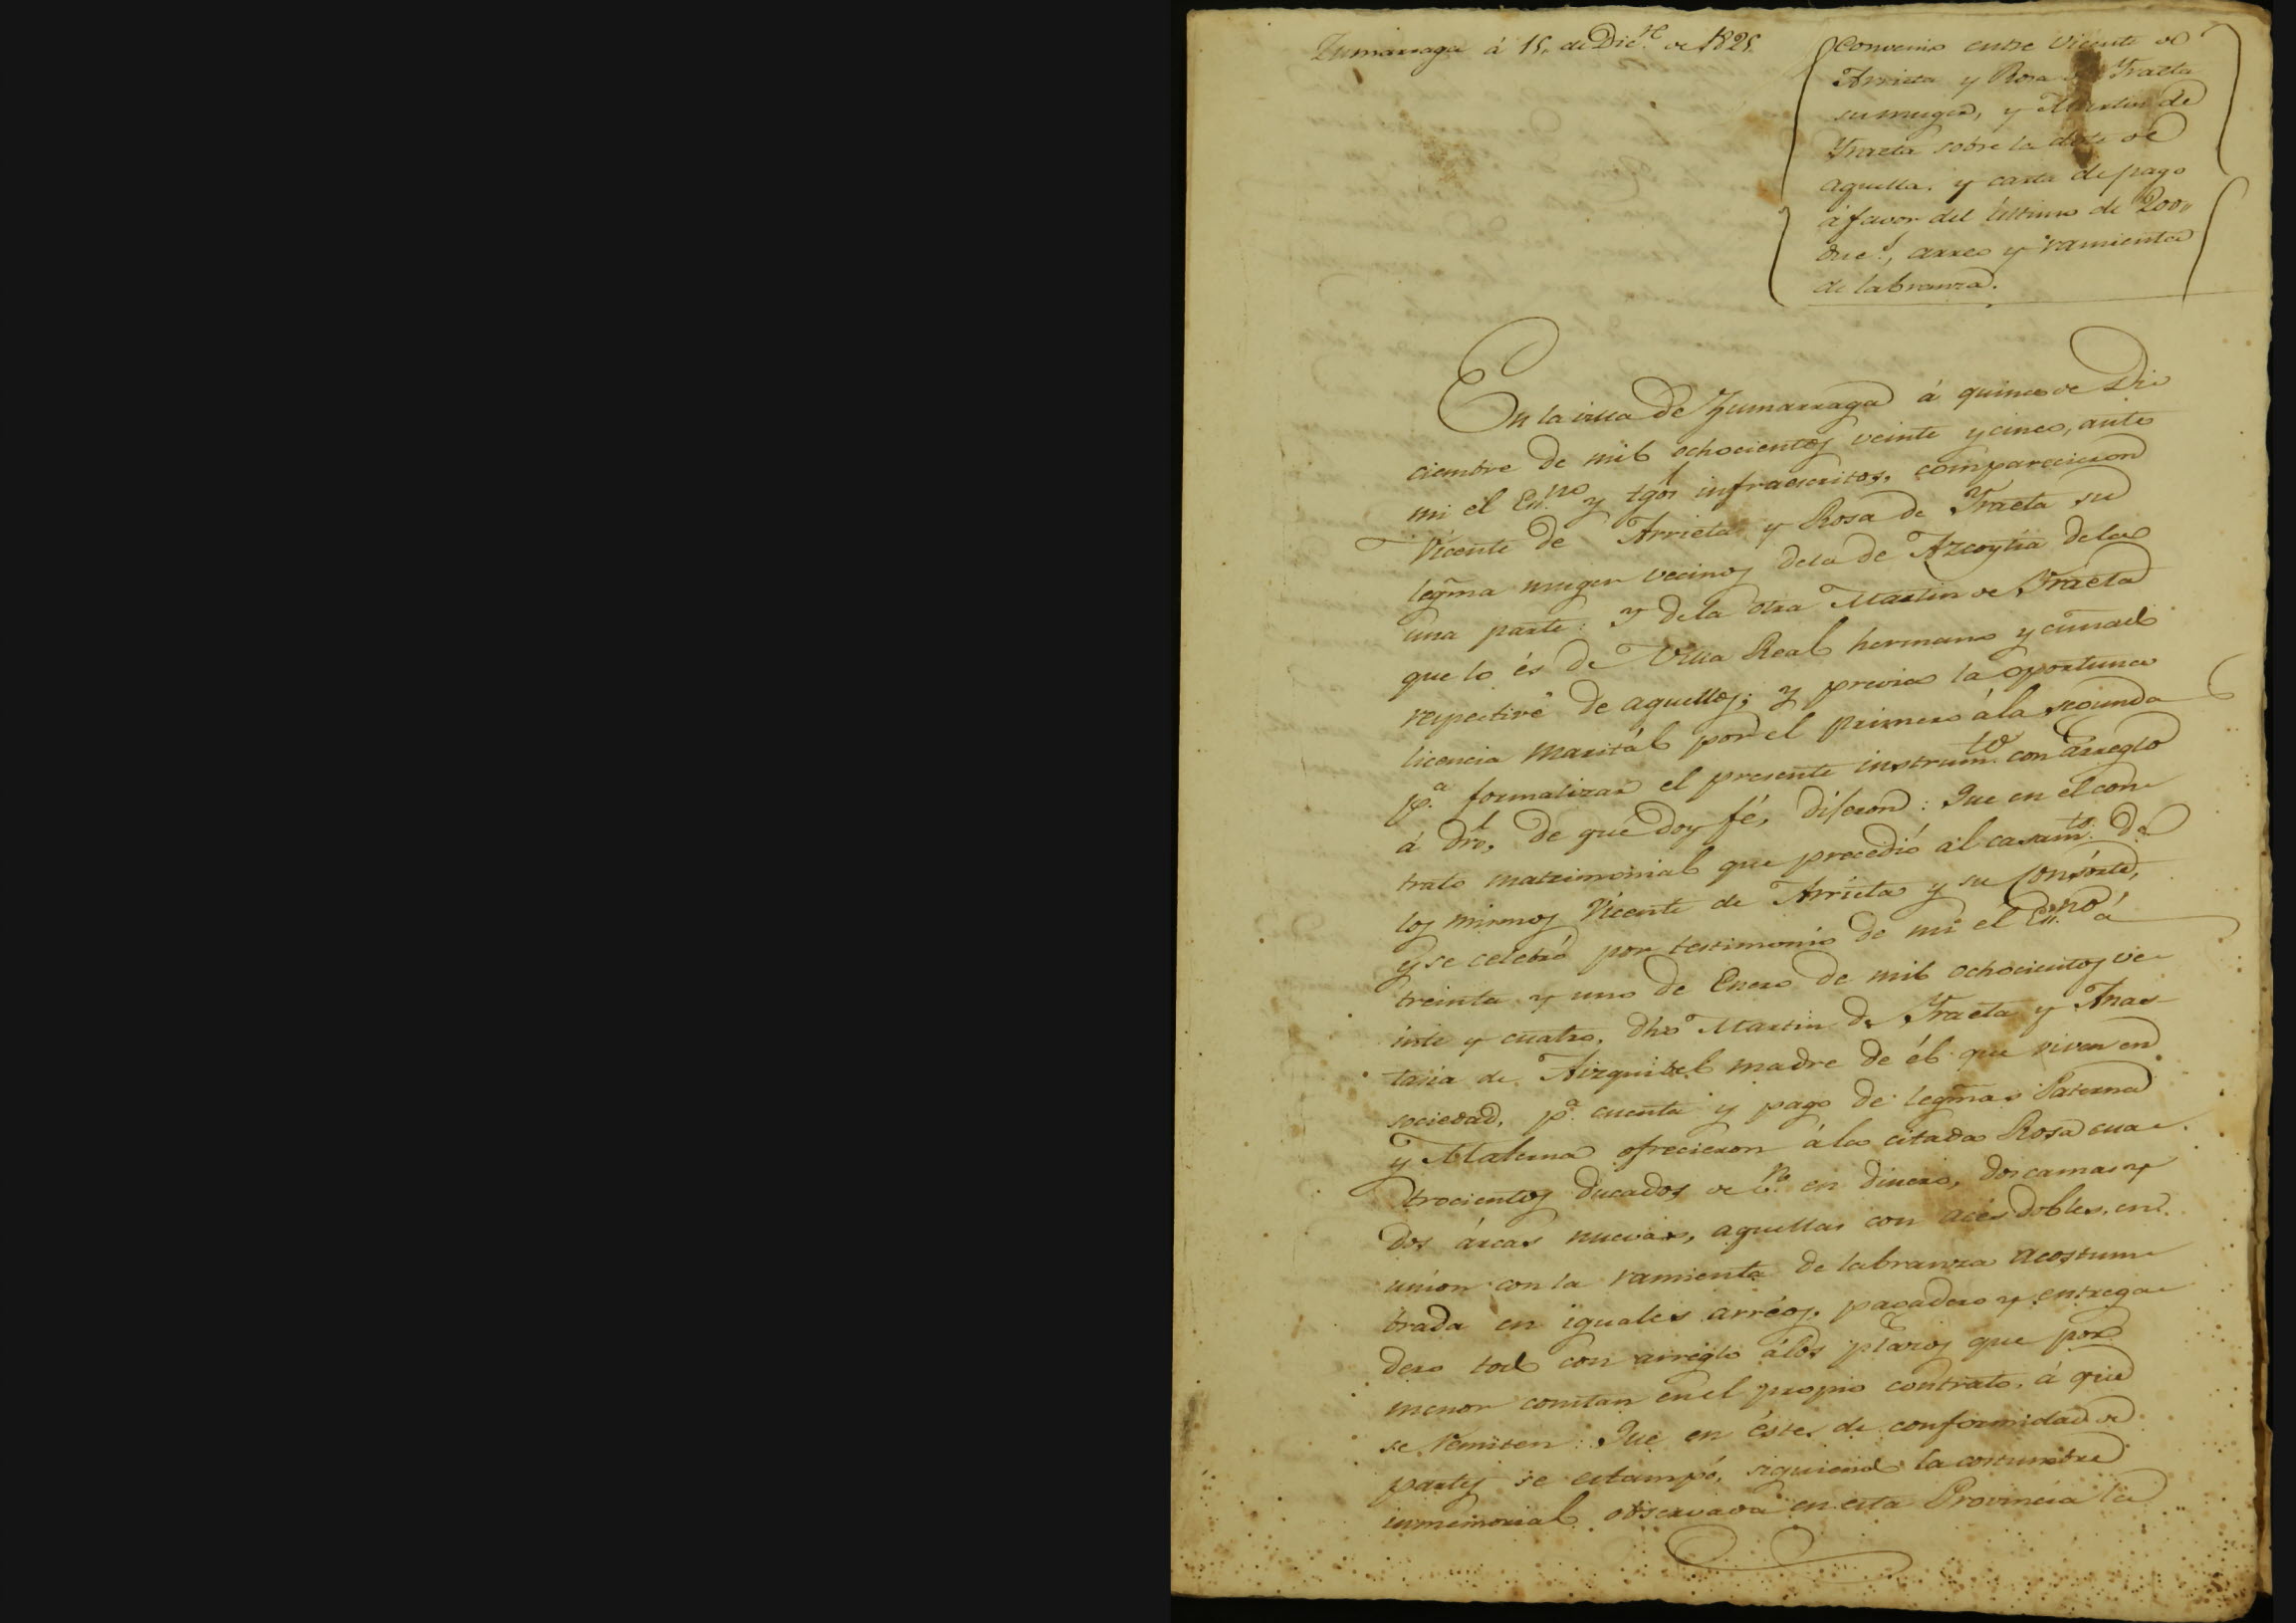 Zumarraga á 15, de Dic.re de 1825.
Convenio entre Vicente de
Arrieta y Rosa de Yraeta
su muger, y Martin de
Yraeta sobre la dote de
aquella, y carta de pago
á favor del último de 200,,
duc.s, arreo y ramienta
de labranza.
En la villa de Zumarraga á quince de Di
ciembre de mil ochocientos veinte y cinco, ante
mi el Es.no y tgos infraescritos, comparecieron
Vicente de Arrieta y Rosa de Yraeta su
legma muger vecinos dela de Azcoytia dela
una parte: y dela otra Martin de Yraeta
que lo és de Villa Real hermano y cuñado
respective de aquellos; y previa la oportuna
licencia maritál por el primero ála segunda
p.a formalizar el presente instrum.to con arreglo
á dro, de qué doy fé, dijeron: Que en el con-
trato matrimonial que precedió al casam.to de
los mismos Vicente de Arrieta y su Consorte,
y se celebró por testimonio de mi el Es.no á
treinta y uno de Enero de mil ochocientos ve-
inte y cuatro, dho Martin de Yraeta y Anas-
tasia de Aizquibel madre de él que viven en
sociedad, p.a cuenta y pago de legmas Paterna
y Materna ofrecieron ála citada Rosa cua-
trocientos ducados de v.n en dinero, dos camas y
dos árcas nuevas, aquellas con acés dobles, en
union con la ramienta de labranza acostum-
brada en iguales arréos, pagadero y entrega-
dero todo con arreglo álos plazos que por
menor constan en el propio contrato, á que
se remiten: Que en éste de conformidad de
partes se estampó, siguiendo la costumbre
inmemorial observada en esta Provincia la